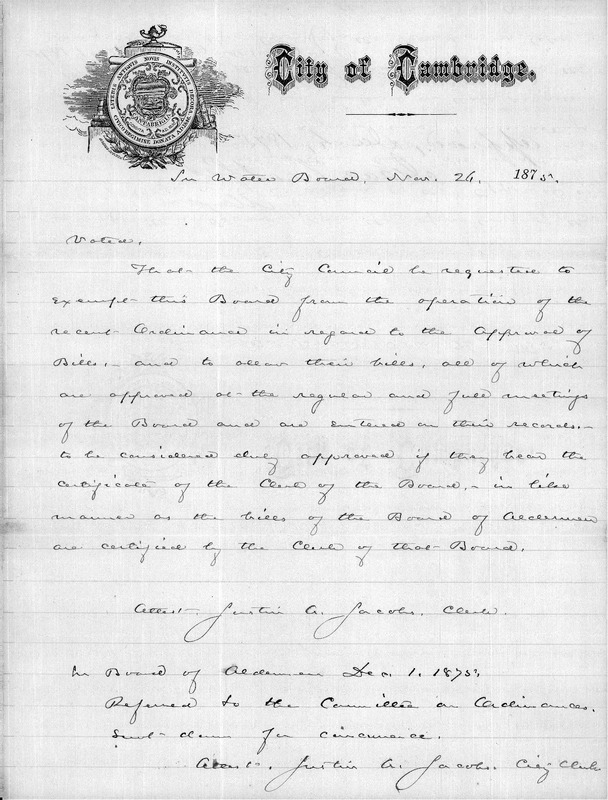 LITERIS ANTIQUIS NOVIS INSTITUTIS DECORA
CANTABRIGIA
CIVICO REGIMINE DONATA AD
City of Cambridge.
In Water Board, Nov. 26, 1875.
Voted,
That the City Council be requested to
exempt this Board from the operation of the
recent Ordinance in regard to the Approval of
Bills, – and to allow their bills, all of which
are approved at the regular and full meetings
of the Board and are entered on their records, –
to be considered duly approved if they bear the
certificate of the Clerk of the Board, – in like
manner as the bills of the Board of Aldermen
are certified by the Clerk of that Board.
Attest. Justin A. Jacobs. Clerk.
In Board of Aldermen Dec. 1. 1875.
Referred to the Committee on Ordinances.
Sent down for concurrence.
Attest. Justin A. Jacobs. City Clerk